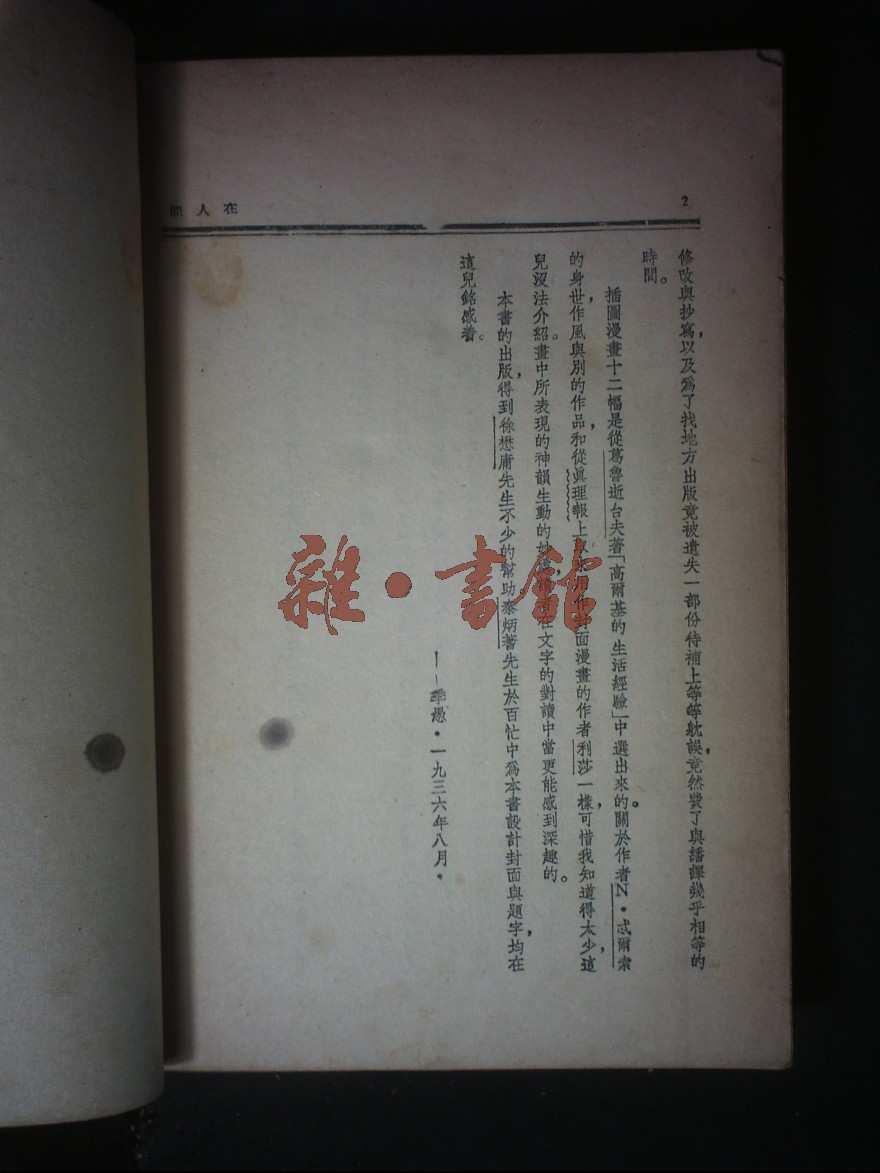 2
在人間
修改與抄寫，以及爲了找地方出版竟被遺失一部份待補上等等躭誤，竟然費了與譒譯幾乎相等的
時間。
插圖漫畫十二幅是從葛魯逝台夫著「高爾基的生活經驗」中選出來的。關於作者N·忒爾索
的身世，作風與別的作品，和從眞理報上取來用作封面漫畫的作者利莎一樣，可惜我知道得太少，這
兒沒法介紹。畫中所表現的神韻生動的妙處，在文字的對讀中當更能感到深趣的。
本書的出版，得到徐懋庸先生不少的幫助，泰炳蓍先生於百忙中爲本書設計封面與題字，均在
這兒銘感着。
——季愚·一九三六年八月·
雜·書館